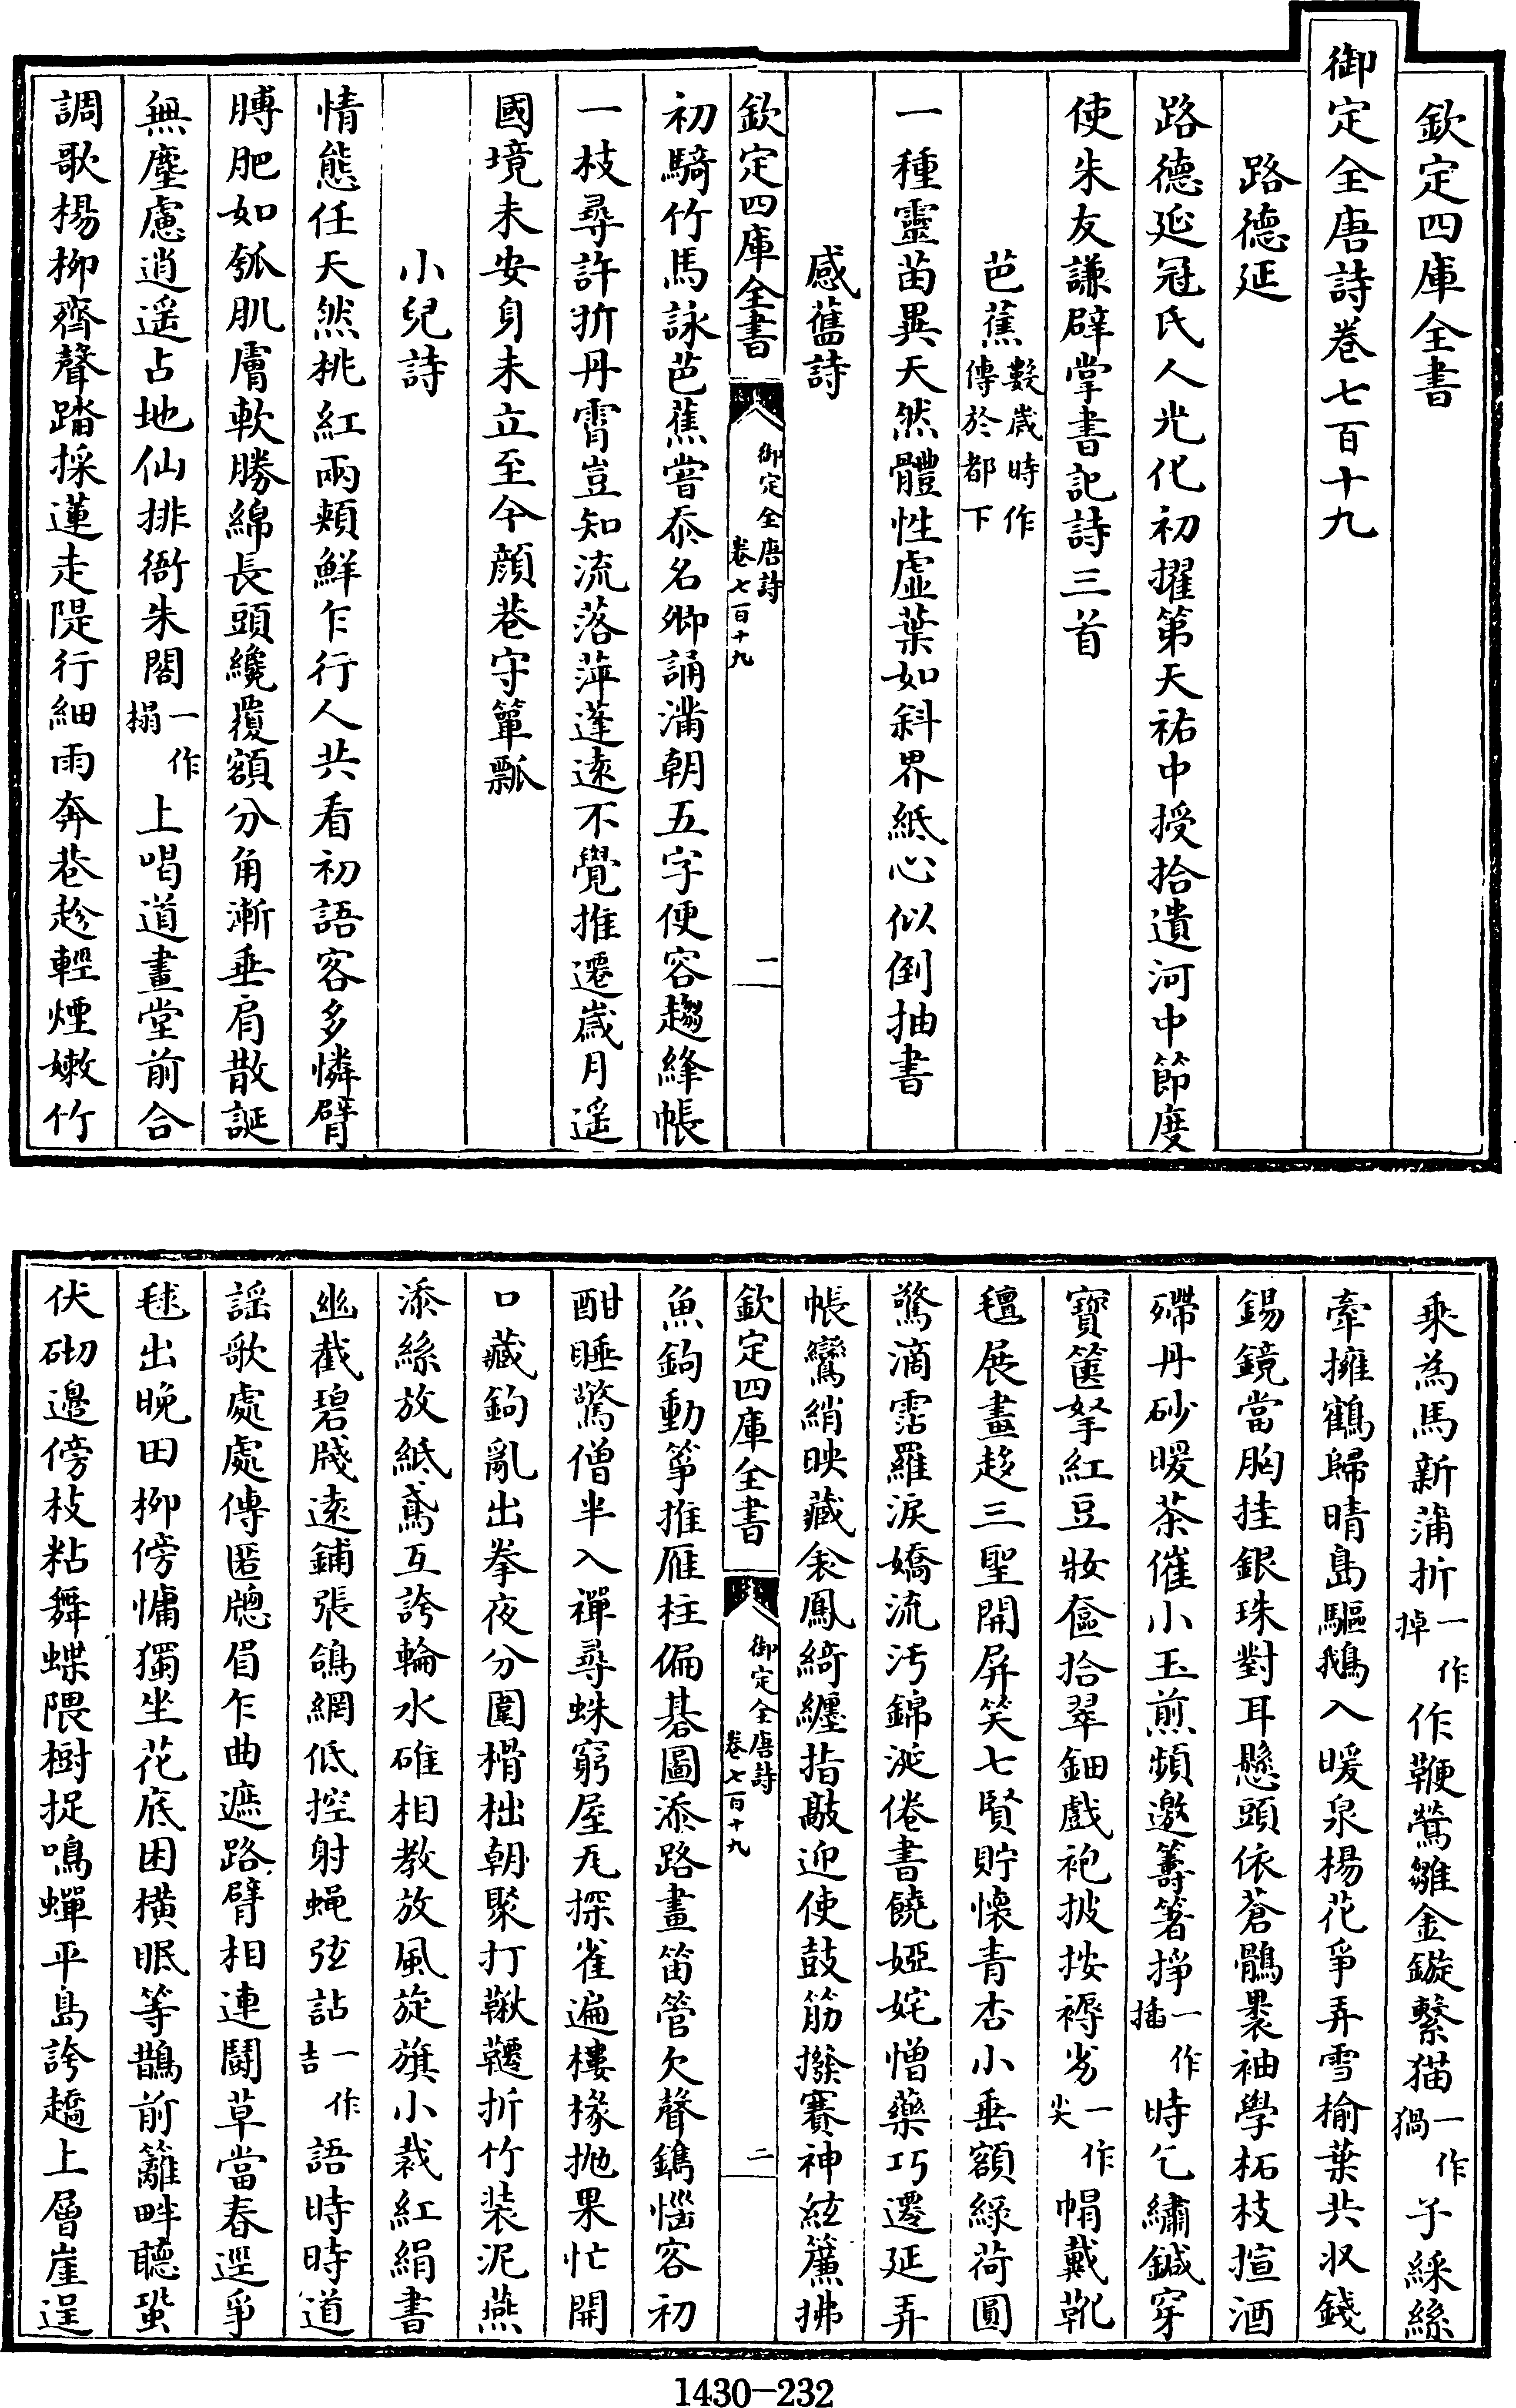 欽定四庫全書
御定全唐詩卷七百十九
路德延
路德延冠氏人光化初擢第天祐中授拾遺河中節度
使朱友謙辟掌書記詩三首
芭蕉數歲時作傳於都下
一種靈苗異天然體性虛葉如斜界紙心似倒抽書
感舊詩
欽定四庫全書
御定全唐詩
卷七百十九
一
初騎竹馬詠芭蕉嘗忝名卿誦滿朝五字便容趨絳帳
一枝尋許折丹霄豈知流落萍蓬遠不覺推遷歲月遥
國境未安身未立至今顔巷守簞瓢
小兒詩
情態任天然桃紅兩頰鮮乍行人共看初語客多憐臂
膊肥如瓠肌膚軟勝綿長頭纔覆額分角漸垂肩散誕
無塵慮逍遥占地仙排衙朱閣一作榻上喝道畫堂前合
調歌楊柳齊聲踏採蓮走隄行細雨奔巷趁輕煙嫩竹
乘為馬新蒲折一作掉作鞭鶯雛金鏇繫猫一作猧子綵絲
牽擁鶴歸晴島驅鵝入暖泉楊花爭弄雪榆葉共収錢
錫鏡當胸挂銀珠對耳懸頭依蒼鶻裹袖學柘枝揎酒
殢丹砂暖茶催小玉煎頻邀籌箸掙一作插時乞繡鍼穿
寶篋拏紅豆妝奩拾翠鈿戲袍披按褥劣一作尖帽戴靴
氊展畫趍三聖開屏笑七賢貯懷青杏小垂額緑荷圓
驚滴霑羅淚嬌流汚錦涎倦書饒婭姹憎藥巧遷延弄
帳鸞綃映藏衾鳳綺纏指敲迎使鼓筋撥賽神絃簾拂
欽定四庫全書
御定全唐詩
卷七百十九
二
魚鉤動箏推雁柱偏碁圖添路畫笛管欠聲鐫惱客初
酣睡驚僧半入禪尋蛛窮屋瓦探雀遍樓椽抛果忙開
口藏鉤亂出拳夜分圍榾柮朝聚打鞦韆折竹装泥燕
添絲放紙鳶互誇輪水碓相教放風旋旗小裁紅絹書
幽截碧牋遠鋪張鴿網低控射蠅弦詀一作吉語時時道
謡歌處處傳匿牕眉乍曲遮路臂相連鬬草當春逕爭
毬出晚田柳傍慵獨坐花底困横眠等鵲前籬畔聽蛩
伏砌邊傍枝粘舞蝶隈樹捉鳴蟬平島誇趫上層崖逞
1430-232